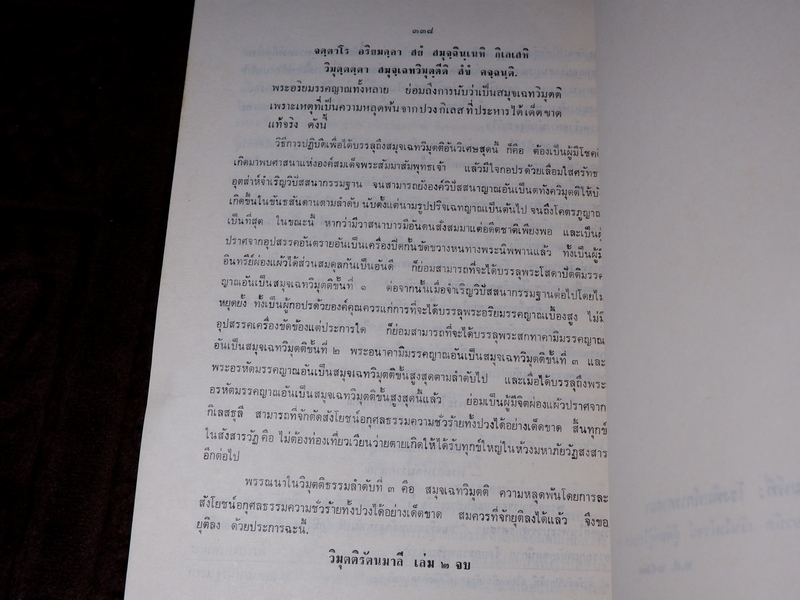 ๓๓๘
จตฺตาโร อริยมคฺคา สยํ สมุจฺฉินฺเนหิ กิเลเสหิ
วิมุตฺตตฺตา สมุจฺเฉทวิมุตฺตีติ สํขํ คจฺฉนฺติ.
พระอริยมรรคญาณทั้งหลาย ย่อมถึงการนับว่าเป็นสมุจเฉทวิมุตติ
เพราะเหตุที่เป็นความหลุดพ้นจากปวงกิเลสที่ประหารได้เด็ดขาด
แท้จริง ดังนี้
วิธีการปฏิบัติเพื่อได้บรรลุถึงสมุจเฉทวิมุตติอันวิเศษสุดนี้ ก็คือ ต้องเป็นผู้มีโชคดี
เกิดมาพบศาสนาแห่งองค์สมเด็จพระสัมมาสัมพุทธเจ้า แล้วมีใจกอปรด้วยเลื่อมใสศรัทธา
อุตส่าห์จำเริญวิปัสสนากรรมฐาน จนสามารถยังองค์วิปัสสนาญาณอันเป็นตทังควิมุตติให้บั
เกิดขึ้นในขันธสันดานตามลำดับ นับตั้งแต่นามรูปปริจเฉทญาณเป็นต้นไป จนถึงโคตรภูญาณ
เป็นที่สุด ในขณะนี้ หากว่ามีวาสนาบารมีอันตนสั่งสมมาแต่อดีตชาติเพียงพอ และเป็นผู้
ปราศจากอุปสรรคอันตรายอันเป็นเครื่องปิดกั้นขัดขวางหนทางพระนิพพานแล้ว ทั้งเป็นผู้มี
อินทรีย์ผ่องแผ้วได้ส่วนสมดุลกันเป็นอันดี ก็ย่อมสามารถที่จะได้บรรลุพระโสดาปัตติมรรค
ญาณอันเป็นสมุจเฉทวิมุตติขั้นที่ ๑ ต่อจากนั้นเมื่อจำเริญวิปัสสนากรรมฐานต่อไปโดยไม่
หยุดยั้ง ทั้งเป็นผู้กอปรด้วยองค์คุณควรแก่การที่จะได้บรรลุพระอริยมรรคญาณเบื้องสูง ไม่มี
อุปสรรคเครื่องขัดข้องแต่ประการใด ก็ย่อมสามารถที่จะได้บรรลุพระสกทาคามิมรรคญาณ
อันเป็นสมุจเฉทวิมุตติขั้นที่ ๒ พระอนาคามิมรรคญาณอันเป็นสมุจเฉทวิมุตติขั้นที่ ๓ และ
พระอรหัตมรรคญาณอันเป็นสมุจเฉทวิมุตติขั้นสูงสุดตามลำดับไป และเมื่อได้บรรลุถึงพระ
อรหัตมรรคญาณอันเป็นสมุจเฉทวิมุตติขั้นสูงสุดนี้แล้ว ย่อมเป็นผู้มีจิตผ่องแผ้วปราศจาก
กิเลสธุลี สามารถที่จักตัดสังโยชน์อกุศลธรรมความชั่วร้ายทั้งปวงได้อย่างเด็ดขาด สิ้นทุกข์
ในสังสารวัฏ คือ ไม่ต้องท่องเที่ยวเวียนว่ายตายเกิดให้ได้รับทุกข์ใหญ่ในห้วงมหาภัยวัฏสงสาร
อีกต่อไป
พรรณนาในวิมุตติธรรมลำดับที่ ๓ คือ สมุจเฉทวิมุตติ ความหลุดพ้นโดยการละ
สังโยชน์อกุศลธรรมความชั่วร้ายทั้งปวงได้อย่างเด็ดขาด สมควรที่จักยุติลงได้แล้ว จึงขอ
ยุติลง ด้วยประการฉะนี้.
วิมุตติรัตนมาลี เล่ม ๒ จบ